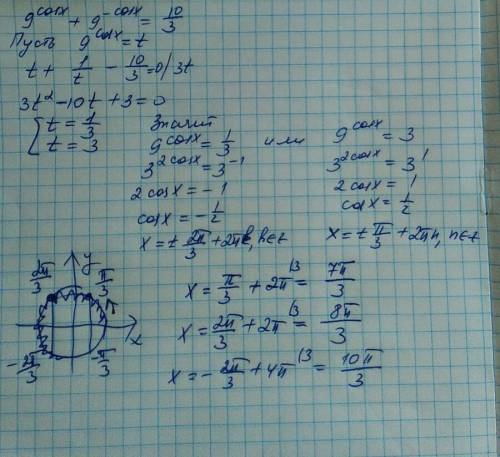 9^cosx + 9^-cosx = 10/3
Пусть 9^cosx = t
t + 1/t - 10/3 = 0 / 3t
3t² - 10t + 3 = 0
[ t = 1/3
t = 3
Значит
9^cosx = 1/3 или 9^cosx = 3
3^2cosx = 3^-1 3^2cosx = 3^1
2cosx = -1 2cosx = 1
cosx = -1/2 cosx = 1/2
x = ± 2π/3 + 2πk, k∈z x = ± π/3 + 2πn, n∈z
y
2π/3 π/3
x
-2π/3 -π/3
x = π/3 + 2π^(3 = 7π/3
x = 2π/3 + 2π^(3 = 8π/3
x = -2π/3 + 4π^(3 = 10π/3